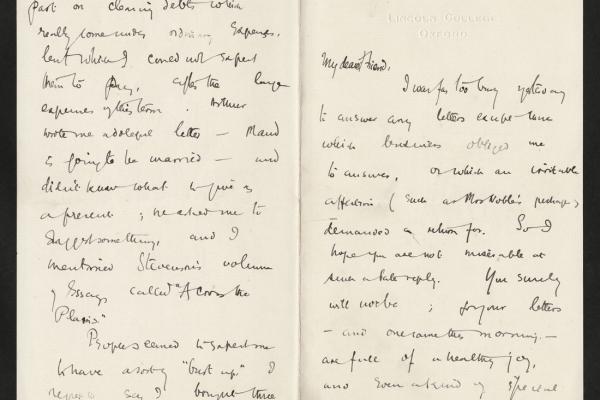 part on clearing debts which
really come under ordinary expenses,
but which I could not expect
them to pay, after the large
expenses of this term. Arthur
wrote me a doleful letter — Maud
is going to be married — and
didn't know what to give as
a present; he asked me to
suggest something, and I
mentioned Stevenson's volume
of Essays called "Across the
Plains."
People seemed to expect me
to have a sort of "bust up." I
regret to say I bought three
LINCOLN COLLEGE
OXFORD.
My dear friend,
I was far too busy yesterday
to answer any letters except those
which business obliged me
to answer, or which an irritable
affection (such as Mrs Noble's perhaps)
demanded a return for. So I
hope you are not miserable at
such a late reply. You surely
will not be; for your letters
— and one came this morning —
are full of a healthy joy,
and even a kind of special